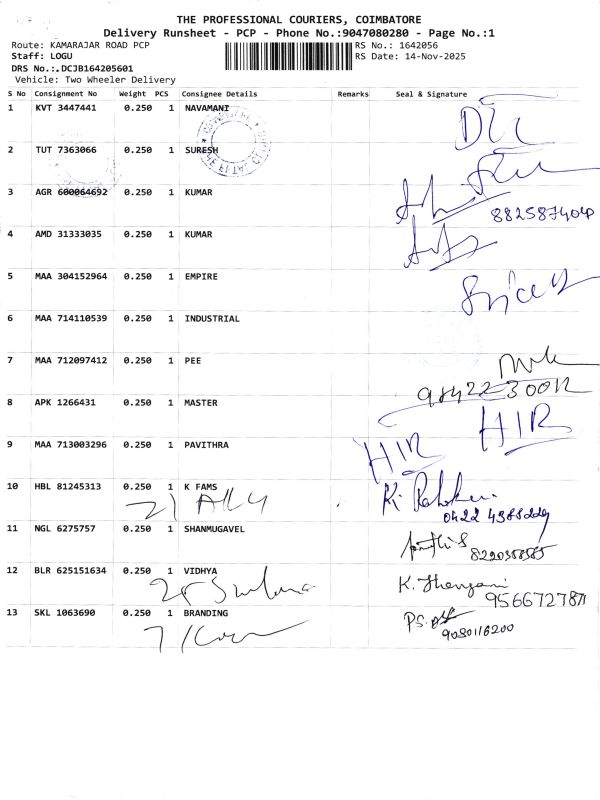 THE PROFESSIONAL COURIERS, COIMBATORE
Delivery Runsheet - PCP - Phone No.:9047080280 - Page No.:1
Route: KAMARAJAR ROAD PCP RS No.: 1642056
Staff: LOGU RS Date: 14-Nov-2025
DRS No.:.DCJB164205601
Vehicle: Two Wheeler Delivery
S No Consignment No Weight PCS Consignee Details Remarks Seal & Signature
1 KVT 3447441 0.250 1 NAVAMANI
2 TUT 7363066 0.250 1 SURESH
3 AGR 600064692 0.250 1 KUMAR
4 AMD 31333035 0.250 1 KUMAR
5 MAA 304152964 0.250 1 EMPIRE
6 MAA 714110539 0.250 1 INDUSTRIAL
7 MAA 712097412 0.250 1 PEE
8 APK 1266431 0.250 1 MASTER
HIR
9 MAA 713003296 0.250 1 PAVITHRA
HIR
10 HBL 81245313 0.250 1 K FAMS
11 NGL 6275757 0.250 1 SHANMUGAVEL
12 BLR 625151634 0.250 1 VIDHYA
9566727871
13 SKL 1063690 0.250 1 BRANDING
9080116200